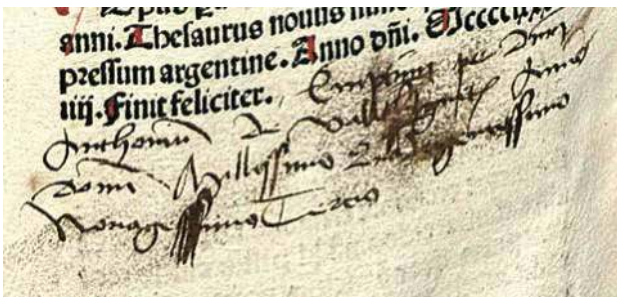 anni. Thesaurus nouus
pressum argentine. Anno dñi. Mcccclxx
iiij. Finit feliciter. Emptus per
Anthonium de Anno
Domi Millessimo Quadragentessimo
Nonagessimo Tercio